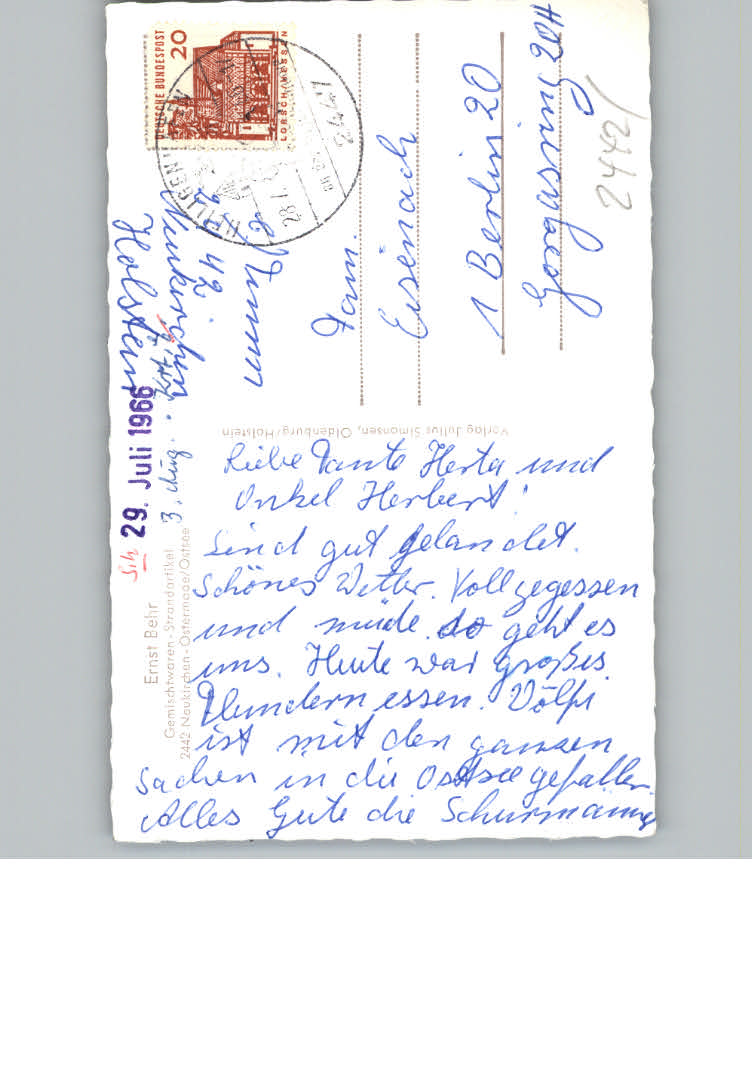 DEUTSCHE BUNDESPOST
20
LORSCH/HESSEN
2442
HEILIGEN
28.7.
2442
Neukirchen
Holstein
Fam.
Eisenach
1 Berlin 20
29. Juli 1966
3. Aug.
Verlag Julius Simonsen, Oldenburg/Holstein
Ernst Behr
Gemischtwaren - Strandartikel
2442 Neukirchen - Ostermade/Ostsee
Liebe Tante Herta und
Onkel Herbert!
Sind gut gelandet.
Schönes Wetter. Vollgegessen
und müde so geht es
uns. Heute war großes
Flundern essen. Völpi
ist mit den ganzen
Sachen in die Ostsee gefallen.
Alles Gute die Schürmanns